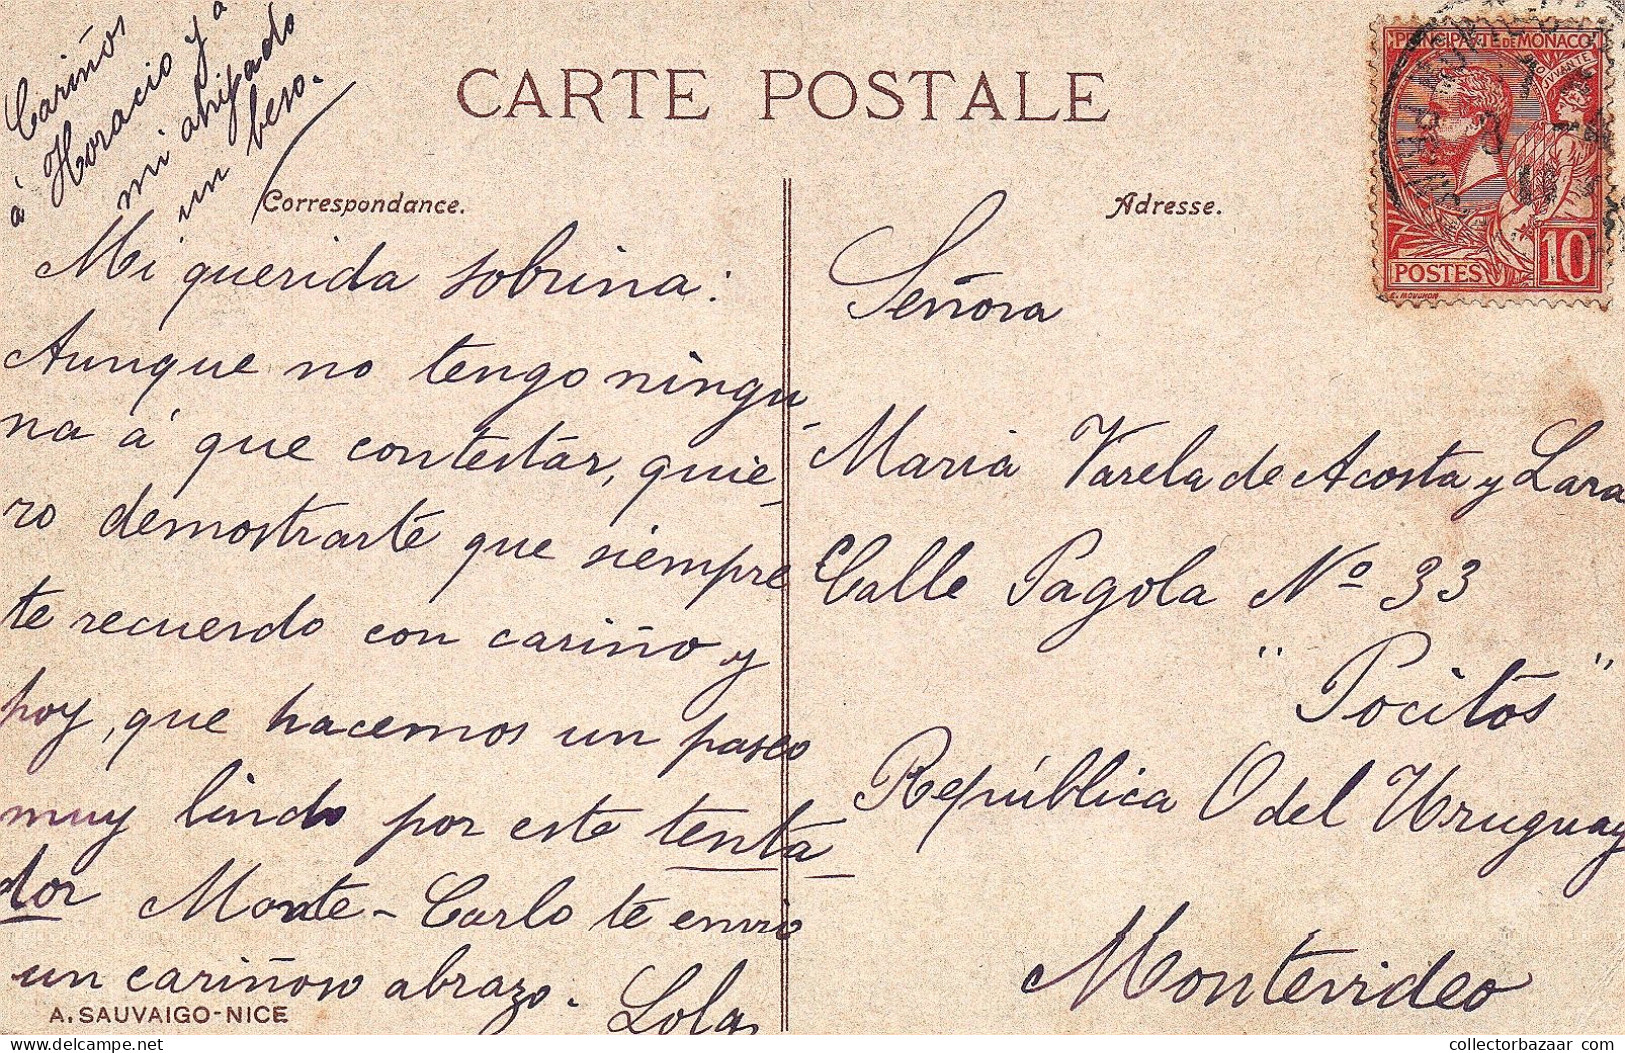 Cariños
á Horacio y á
mi ahijado
un beso.
CARTE POSTALE
Correspondance.
Adresse.
PRINCIPAUTÉ DE MONACO
POSTES 10
E. MOUCHON
Mi querida sobrina:
Aunque no tengo ningu-
na á que contestár, quie-
ro demostrarte que siempre
te recuerdo con cariño y
hoy, que hacemos un paseo
muy lindo por este tenta-
dor Monte-Carlo te envio
un cariñoso abrazo.
Lola
A. SAUVAIGO-NICE
Señora
Maria Varela de Acosta y Lara
Calle Pagola Nº 33
"Pocitos"
República O del Uruguay
Montevideo
collectorbazaar.com